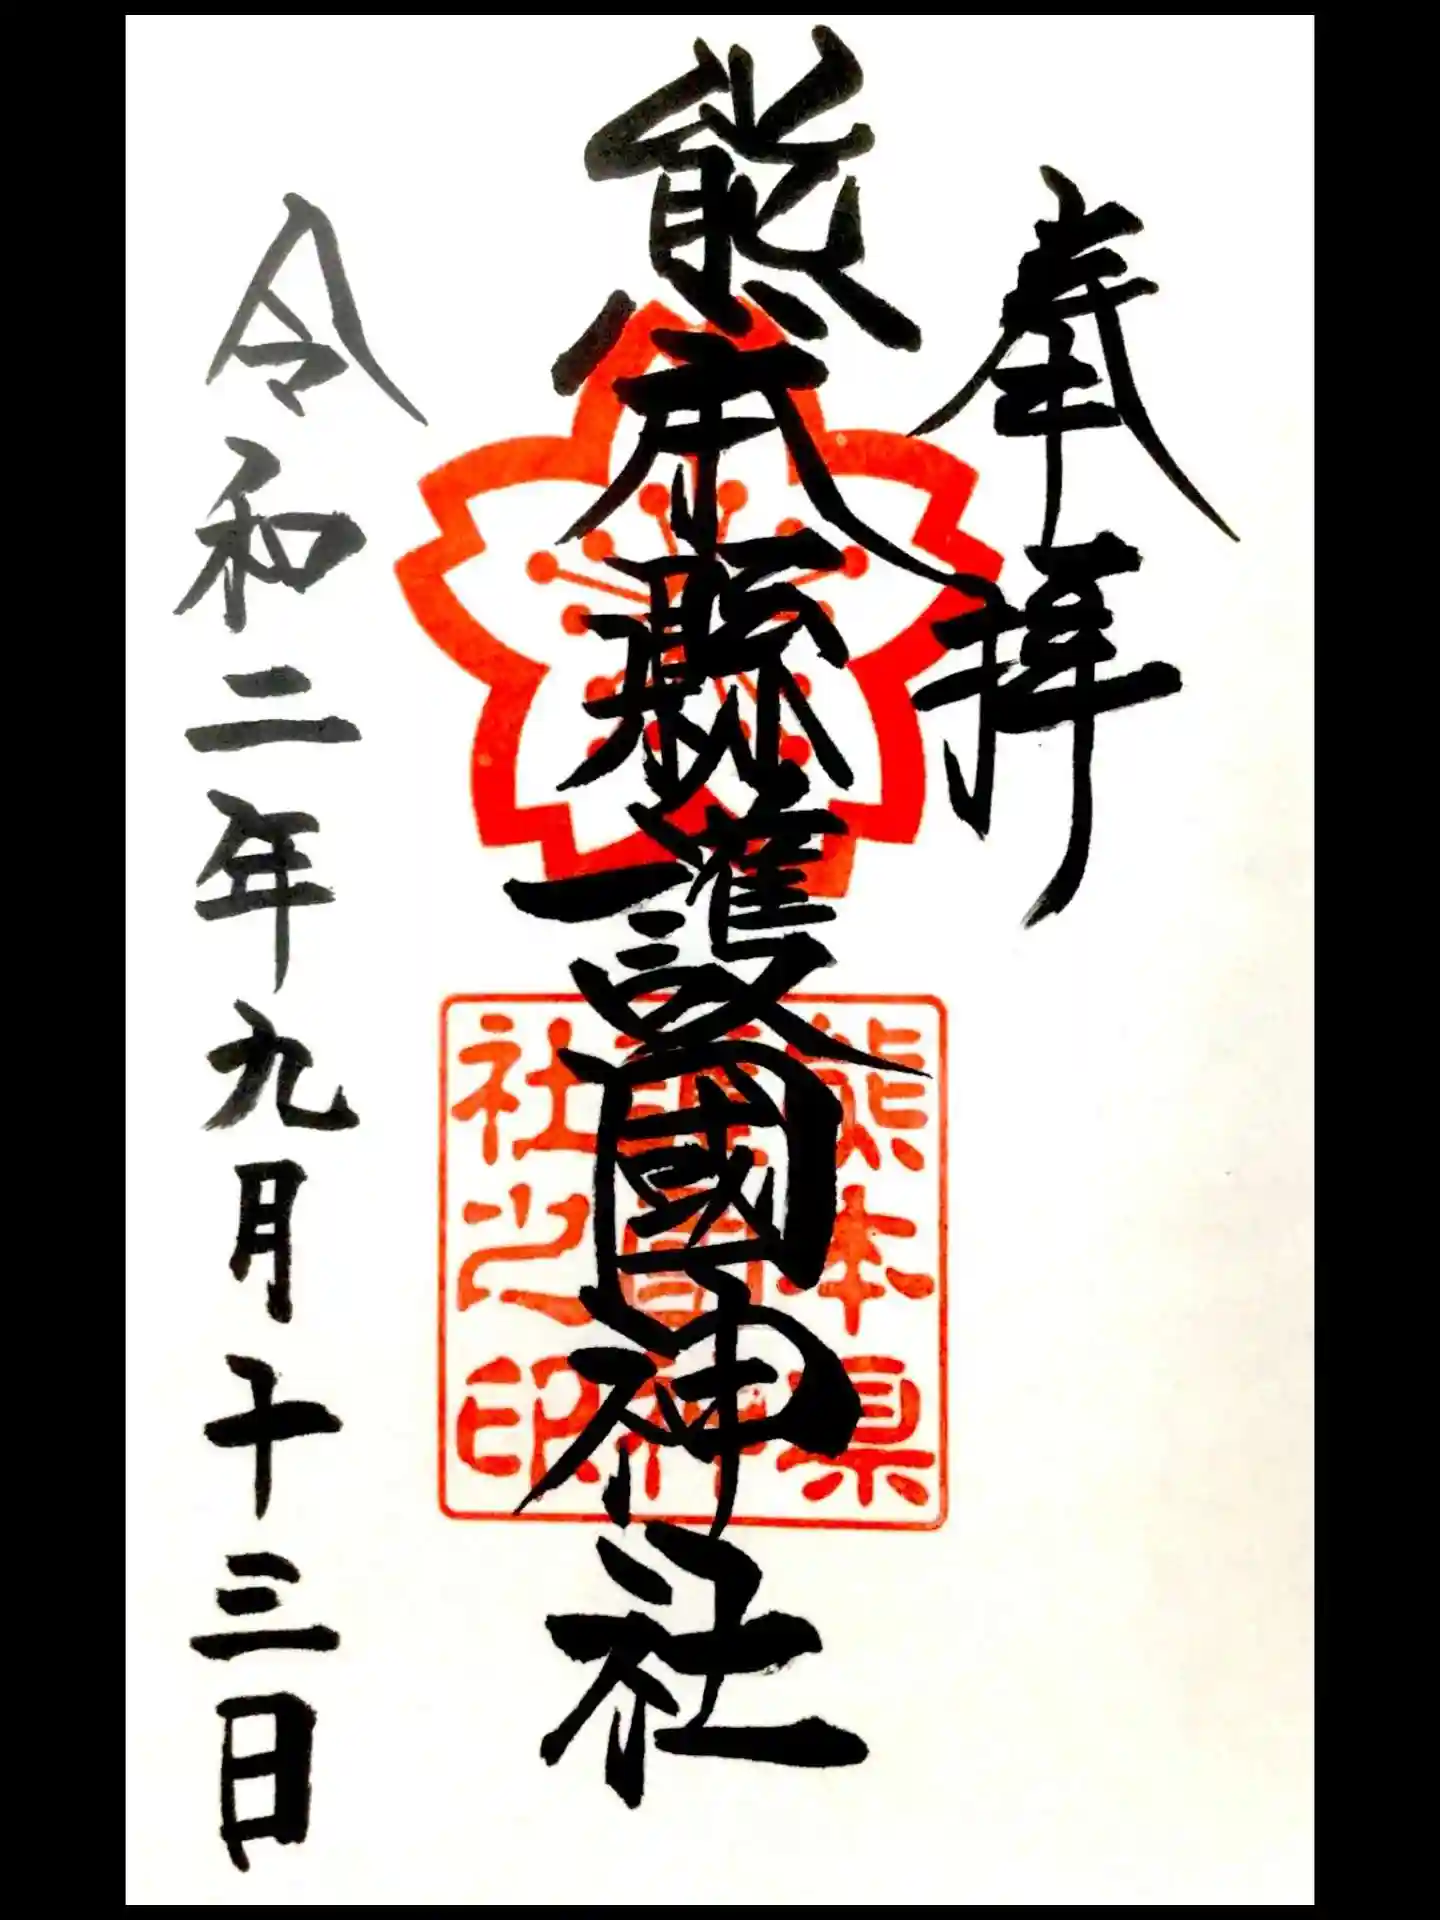 奉拝
熊本縣護國神社
熊本県
護国神
社之印
令和二年九月十三日